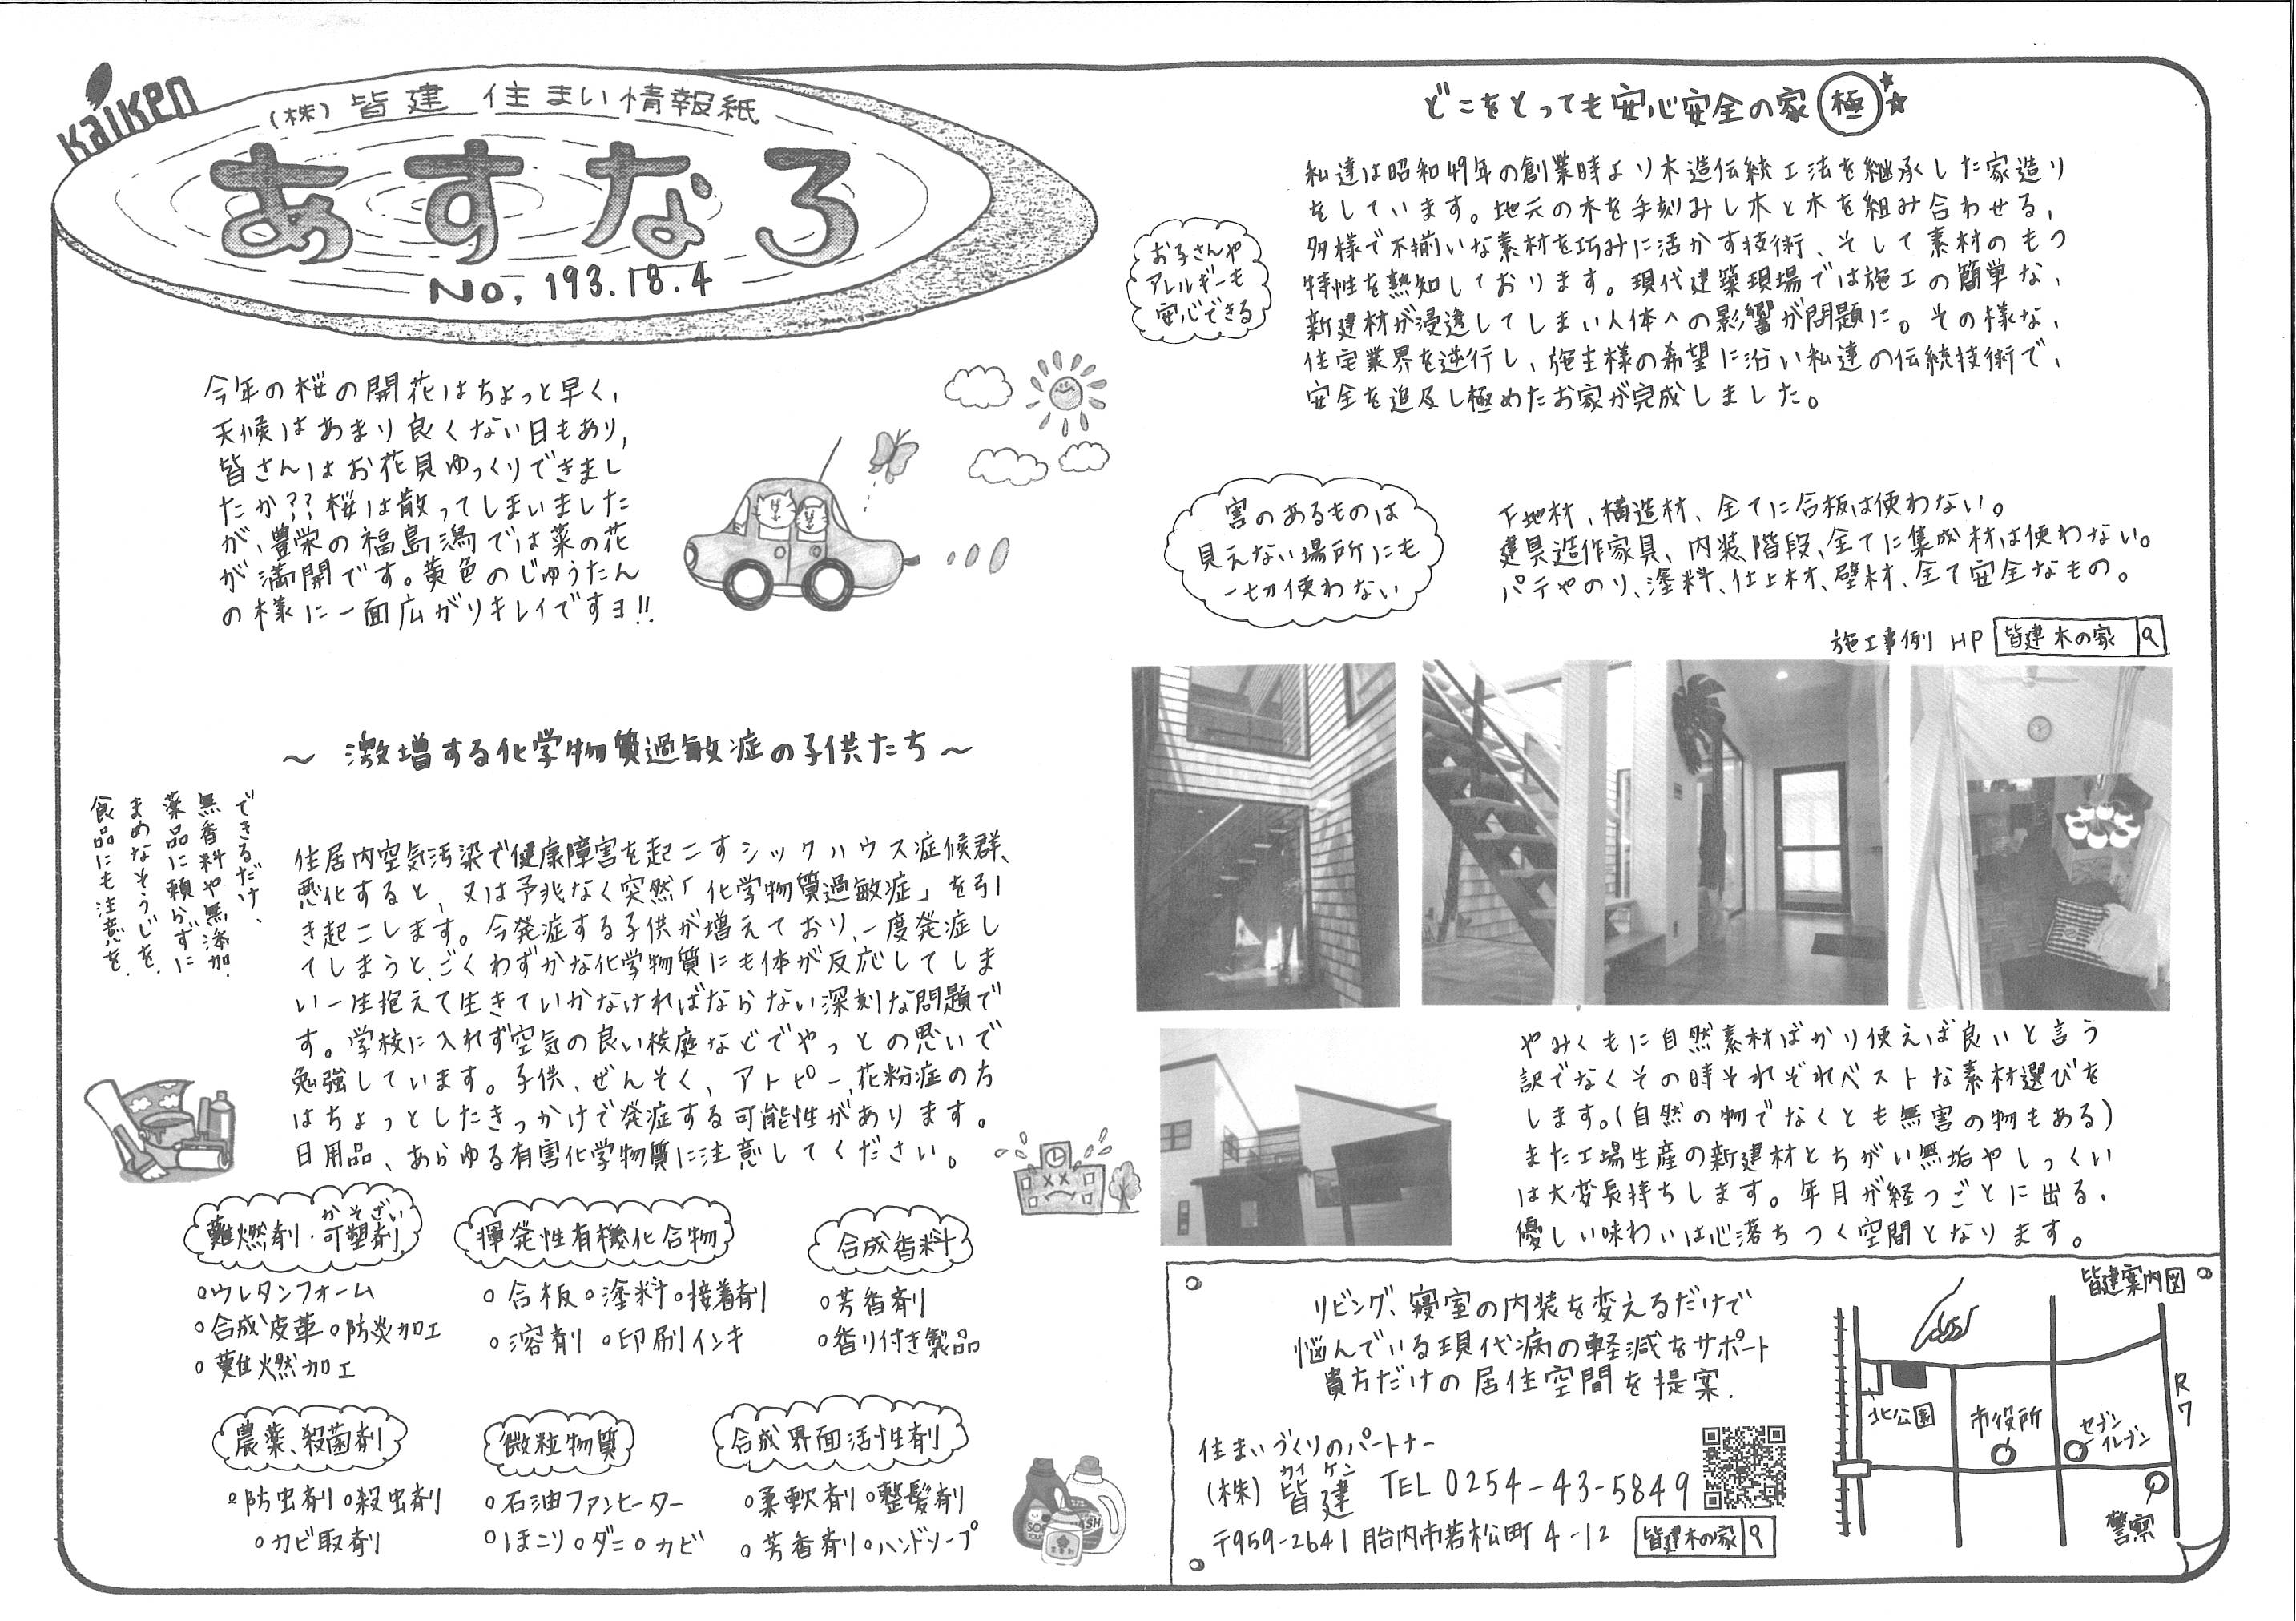 Kaiken
(株) 皆建 住まい情報紙
あすなろ
No, 193.18.4
今年の桜の開花はちょっと早く、
天候はあまり良くない日もあり、
皆さんはお花見ゆっくりできまし
たか??桜は散ってしまいました
が、豊栄の福島潟では菜の花
が満開です。黄色のじゅうたん
の様に一面広がりキレイですヨ!!
～ 激増する化学物質過敏症の子供たち ～
できるだけ、
無香料や無添加.
薬品に頼らずに
まめなそうじを.
食品にも注意を.
住居内空気汚染で健康障害を起こすシックハウス症候群、
悪化すると、又は予兆なく突然「化学物質過敏症」を引
き起こします。今発症する子供が増えており、一度発症し
てしまうと、ごくわずかな化学物質にも体が反応してしま
い一生抱えて生きていかなければならない深刻な問題で
す。学校に入れず空気の良い校庭などでやっとの思いで
勉強しています。子供、ぜんそく、アトピー、花粉症の方
はちょっとしたきっかけで発症する可能性があります。
日用品、あらゆる有害化学物質に注意してください。
かそざい
難燃剤・可塑剤
○ウレタンフォーム
○合成皮革○防炎加工
○難燃加工
揮発性有機化合物
○合板○塗料○接着剤
○溶剤 ○印刷インキ
合成香料
○芳香剤
○香り付き製品
農薬、殺菌剤
○防虫剤○殺虫剤
○カビ取剤
微粒物質
○石油ファンヒーター
○ほこり○ダニ○カビ
合成界面活性剤
○柔軟剤○整髪剤
○芳香剤○ハンドソープ
どこをとっても安心安全の家 極
お子さんや
アレルギーも
安心できる
私達は昭和49年の創業時より木造伝統工法を継承した家造り
をしています。地元の木を手刻みし木と木を組み合わせる、
多様で不揃いな素材を巧みに活かす技術、そして素材のもつ
特性を熟知しております。現代建築現場では施工の簡単な、
新建材が浸透してしまい人体への影響が問題に。その様な、
住宅業界を逆行し、施主様の希望に沿い私達の伝統技術で、
安全を追及し極めたお家が完成しました。
害のあるものは
見えない場所にも
一切使わない
下地材、構造材、全てに合板は使わない。
建具造作家具、内装、階段、全てに集成材は使わない。
パテやのり、塗料、仕上材、壁材、全て安全なもの。
施工事例 HP 皆建 木の家
やみくもに自然素材ばかり使えば良いと言う
訳でなくその時それぞれベストな素材選びを
します。(自然の物でなくとも無害の物もある)
また工場生産の新建材とちがい無垢やしっくい
は大変長持ちします。年月が経つごとに出る、
優しい味わいは心落ちつく空間となります。
リビング、寝室の内装を変えるだけで
悩んでいる現代病の軽減をサポート
貴方だけの居住空間を提案.
住まいづくりのパートナー
カイ ケン
(株) 皆建 TEL 0254-43-5849
〒959-2641 胎内市若松町 4-12 皆建木の家
皆建案内図
北公園
市役所
セブン
イレブン
R7
警察